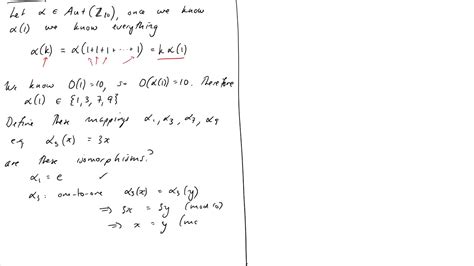 Let α ∈ Aut(ℤ₁₀), once we know
α(1) we know everything
α(k) = α(1+1+1+⋯+1) = kα(1)
We know O(1)=10, so O(α(1))=10. Therefore
α(1) ∈ {1,3,7,9}
Define these mappings α₁, α₃, α₇, α₉
eg α₃(x) = 3x
are these isomorphisms?
α₁ = e ✓
α₃: one-to-one α₃(x) = α₃(y)
⟹ 3x = 3y (mod 10)
⟹ x = y (mo